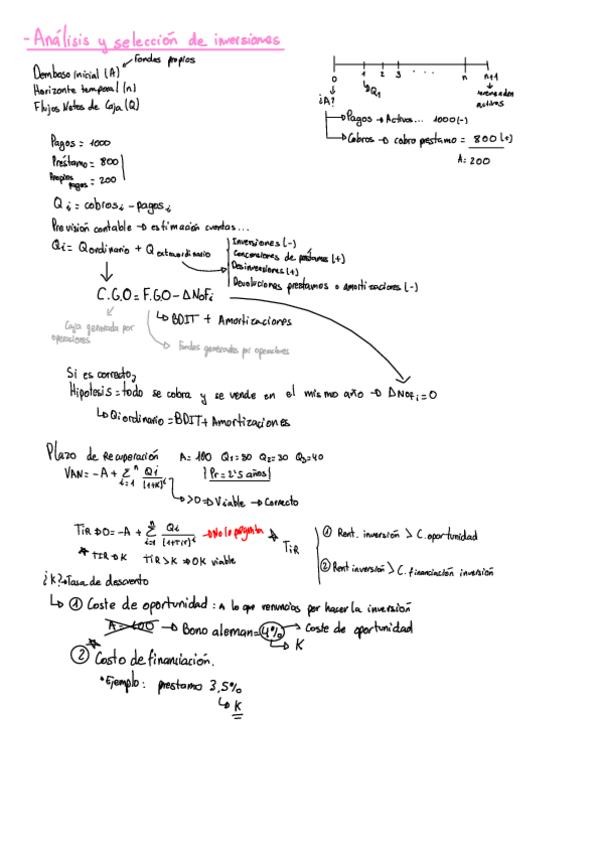 - Análisis y selección de inversiones
Fondos propios
Dembolso Inicial (A)
Horizonte temporal (n)
Flujos Netos de Caja (Q)
0 1 2 3 .... n n+1
Q1
¿A?
Pagos → Activos... 1000 (-)
Cobros → cobro prestamo = 800 (+)
A: 200
Pagos = 1000
Préstamo = 800
Propios pagos = 200
Qi = cobrosi - pagosi
Previsión contable → estimación cuentas...
Qi = Qordinario + Qextraordinario
Inversiones (-)
Concesiones de préstamos (+)
Desinversiones (+)
Devoluciones prestamos o amortizaciones (-)
C.G.O = F.G.O - ΔNoFi
BDIT + Amortizaciones
Caja generada por operaciones
Fondos generados por operaciones
Si es correcto,
Hipotesis = todo se cobra y se vende en el mismo año → ΔNOFi = 0
Qi ordinario = BDIT + Amortizaciones
Plazo de Recuperación A = 100 Q1 = 30 Q2 = 30 Q3 = 40
VAN = -A + Σ i=1 n Qi / (1+K)^i
Pr = 2'5 años
>0 → Viable → Correcto
TIR → 0 = -A + Σ i=1 n Qi / (1+TIR)^i → No lo pregunta
* TIR → K TIR > K → OK viable
* TIR
① Rent. inversión > C. oportunidad
② Rent inversión > C. financiación inversión
¿K? → Tasa de descuento
① Coste de oportunidad: A lo que renuncias por hacer la inversión
A = 100 → Bono aleman = 4% → Coste de oportunidad
K
② Costo de financiación.
• Ejemplo: prestamo 3,5%
K